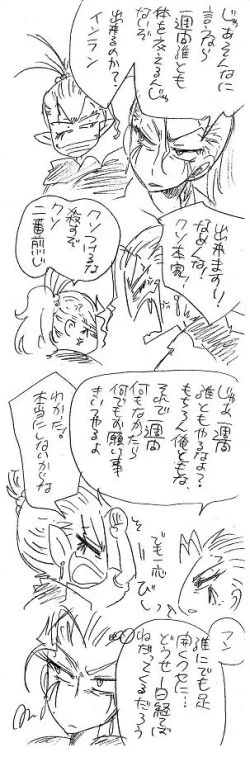 じゃあそんなに
言うなら
一週間誰とも
体を交えるんじゃ
ないぞ
出来るのか?
インラン
出来ます!!
なめんな!
クソ本家!
クソつけるな
殺すぞ
クソ
一番煎じ
じゃあ一週間
誰ともやるなよ?
もちろん俺ともな、
それで一週間
何もなかったら
何でもお願い事
きいてやるよ
わかった。
本当にしないからな
でも
フン
誰にでも足
開くクセに…
どうせ一日経てば
ねだってくるだろう